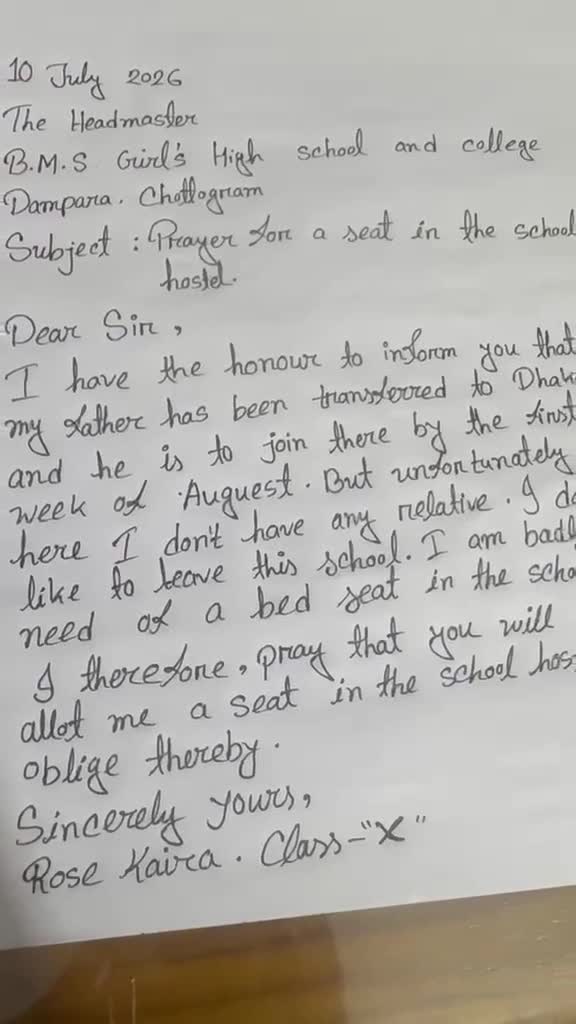 10 July 2026
The Headmaster
B.M.S Girl's High school and college
Dampara. Chattogram
Subject : Prayer for a seat in the school
hostel.
Dear Sir,
I have the honour to inform you that
my father has been transferred to Dhak
and he is to join there by the first
week of Auguest. But unfortunately
here I don't have any relative. I do
like to leave this school. I am badl
need of a bed seat in the scho
I therefore, pray that you will
allot me a seat in the school hos
oblige thereby.
Sincerely yours,
Rose Kaira. Class-"X"